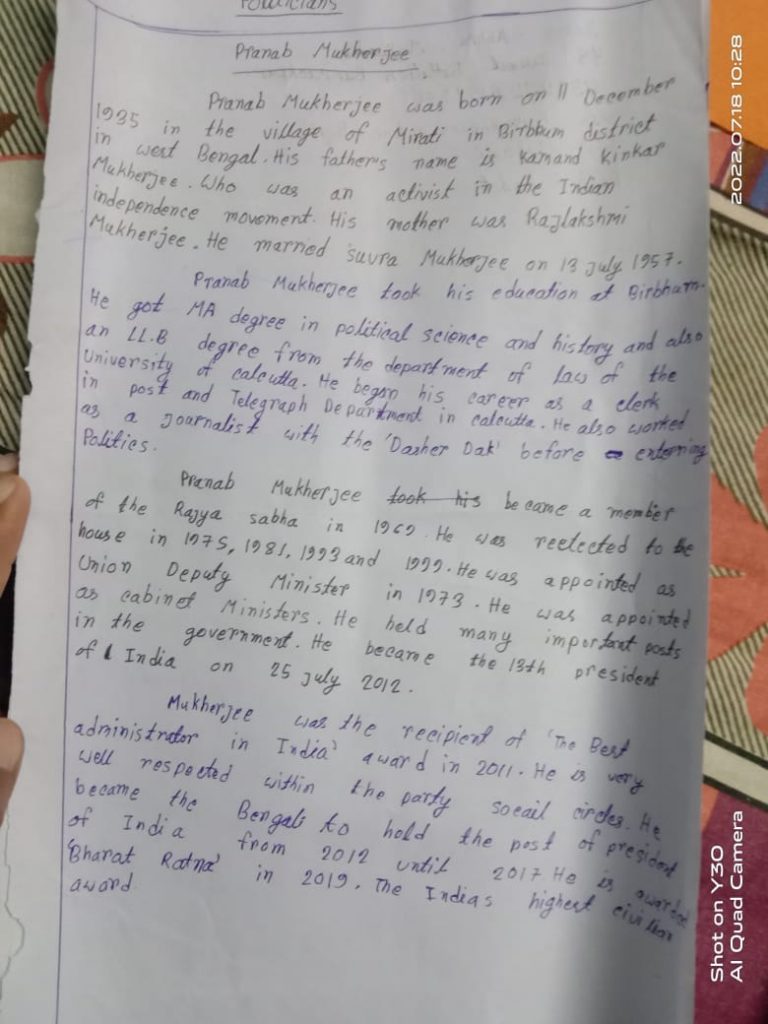 Politicians
Pranab Mukherjee
Pranab Mukherjee was born on 11 December
1935 in the village of Mirati in Birbhum district
in west Bengal. His father's name is Kamand Kinkar
Mukherjee. Who was an activist in the Indian
independence movement. His mother was Rajlakshmi
Mukherjee. He married suvra Mukherjee on 13 july 1957.
Pranab Mukherjee took his education at Birbhum.
He got MA degree in political science and history and also
an LL.B degree from the department of Law of the
University of calcutta. He began his career as a clerk
in post and Telegraph Department in calcutta. He also worked
as a journalist with the 'Dasher Dak' before entering
Politics.
Pranab Mukherjee took his became a member
of the Rajya sabha in 1969. He was reelected to the
house in 1975, 1981, 1993 and 1999. He was appointed as
Union Deputy Minister in 1973. He was appointed
as cabinet Ministers. He held many important posts
in the government. He became the 13th president
of India on 25 july 2012.
Mukherjee was the recipient of 'The Best
administrator in India' award in 2011. He is very
well respected within the party soeail circles. He
became the Bengali to hold the post of president
of India from 2012 until 2017 He is awarded
'Bharat Ratna' in 2019. The Indias highest civilian
award
2022.07.18 10:28
Shot on Y30
AI Quad Camera